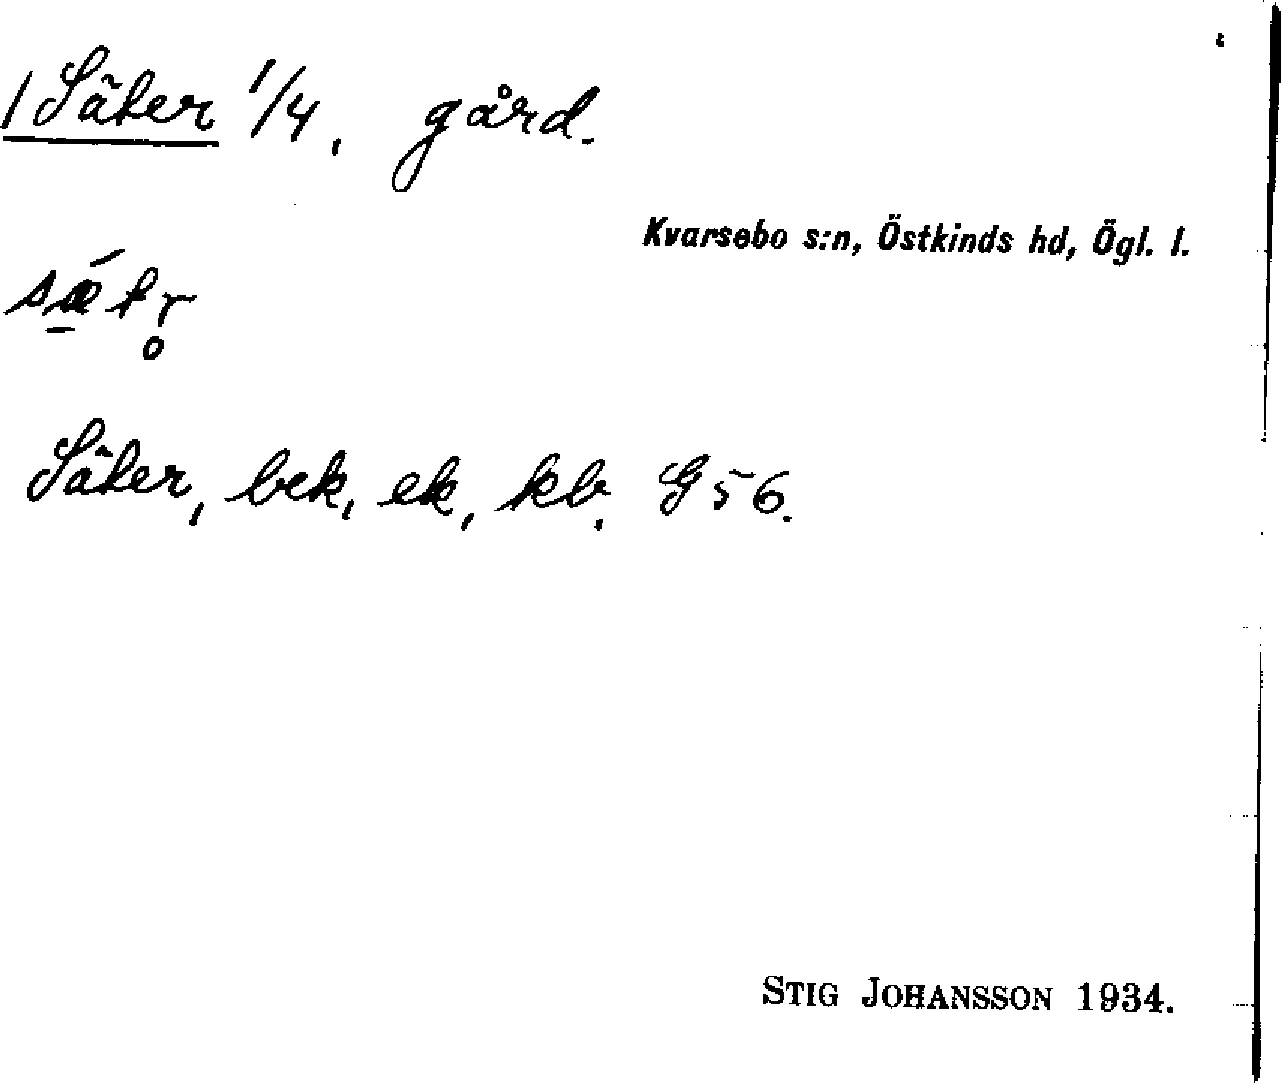 1 Säter 1/4, gård.
Kvarsebo s:n, Östkinds hd, Ögl. l.
sǽ̠tr̥
Säter, bek, ek, kb. G 56.
STIG JOHANSSON 1934.